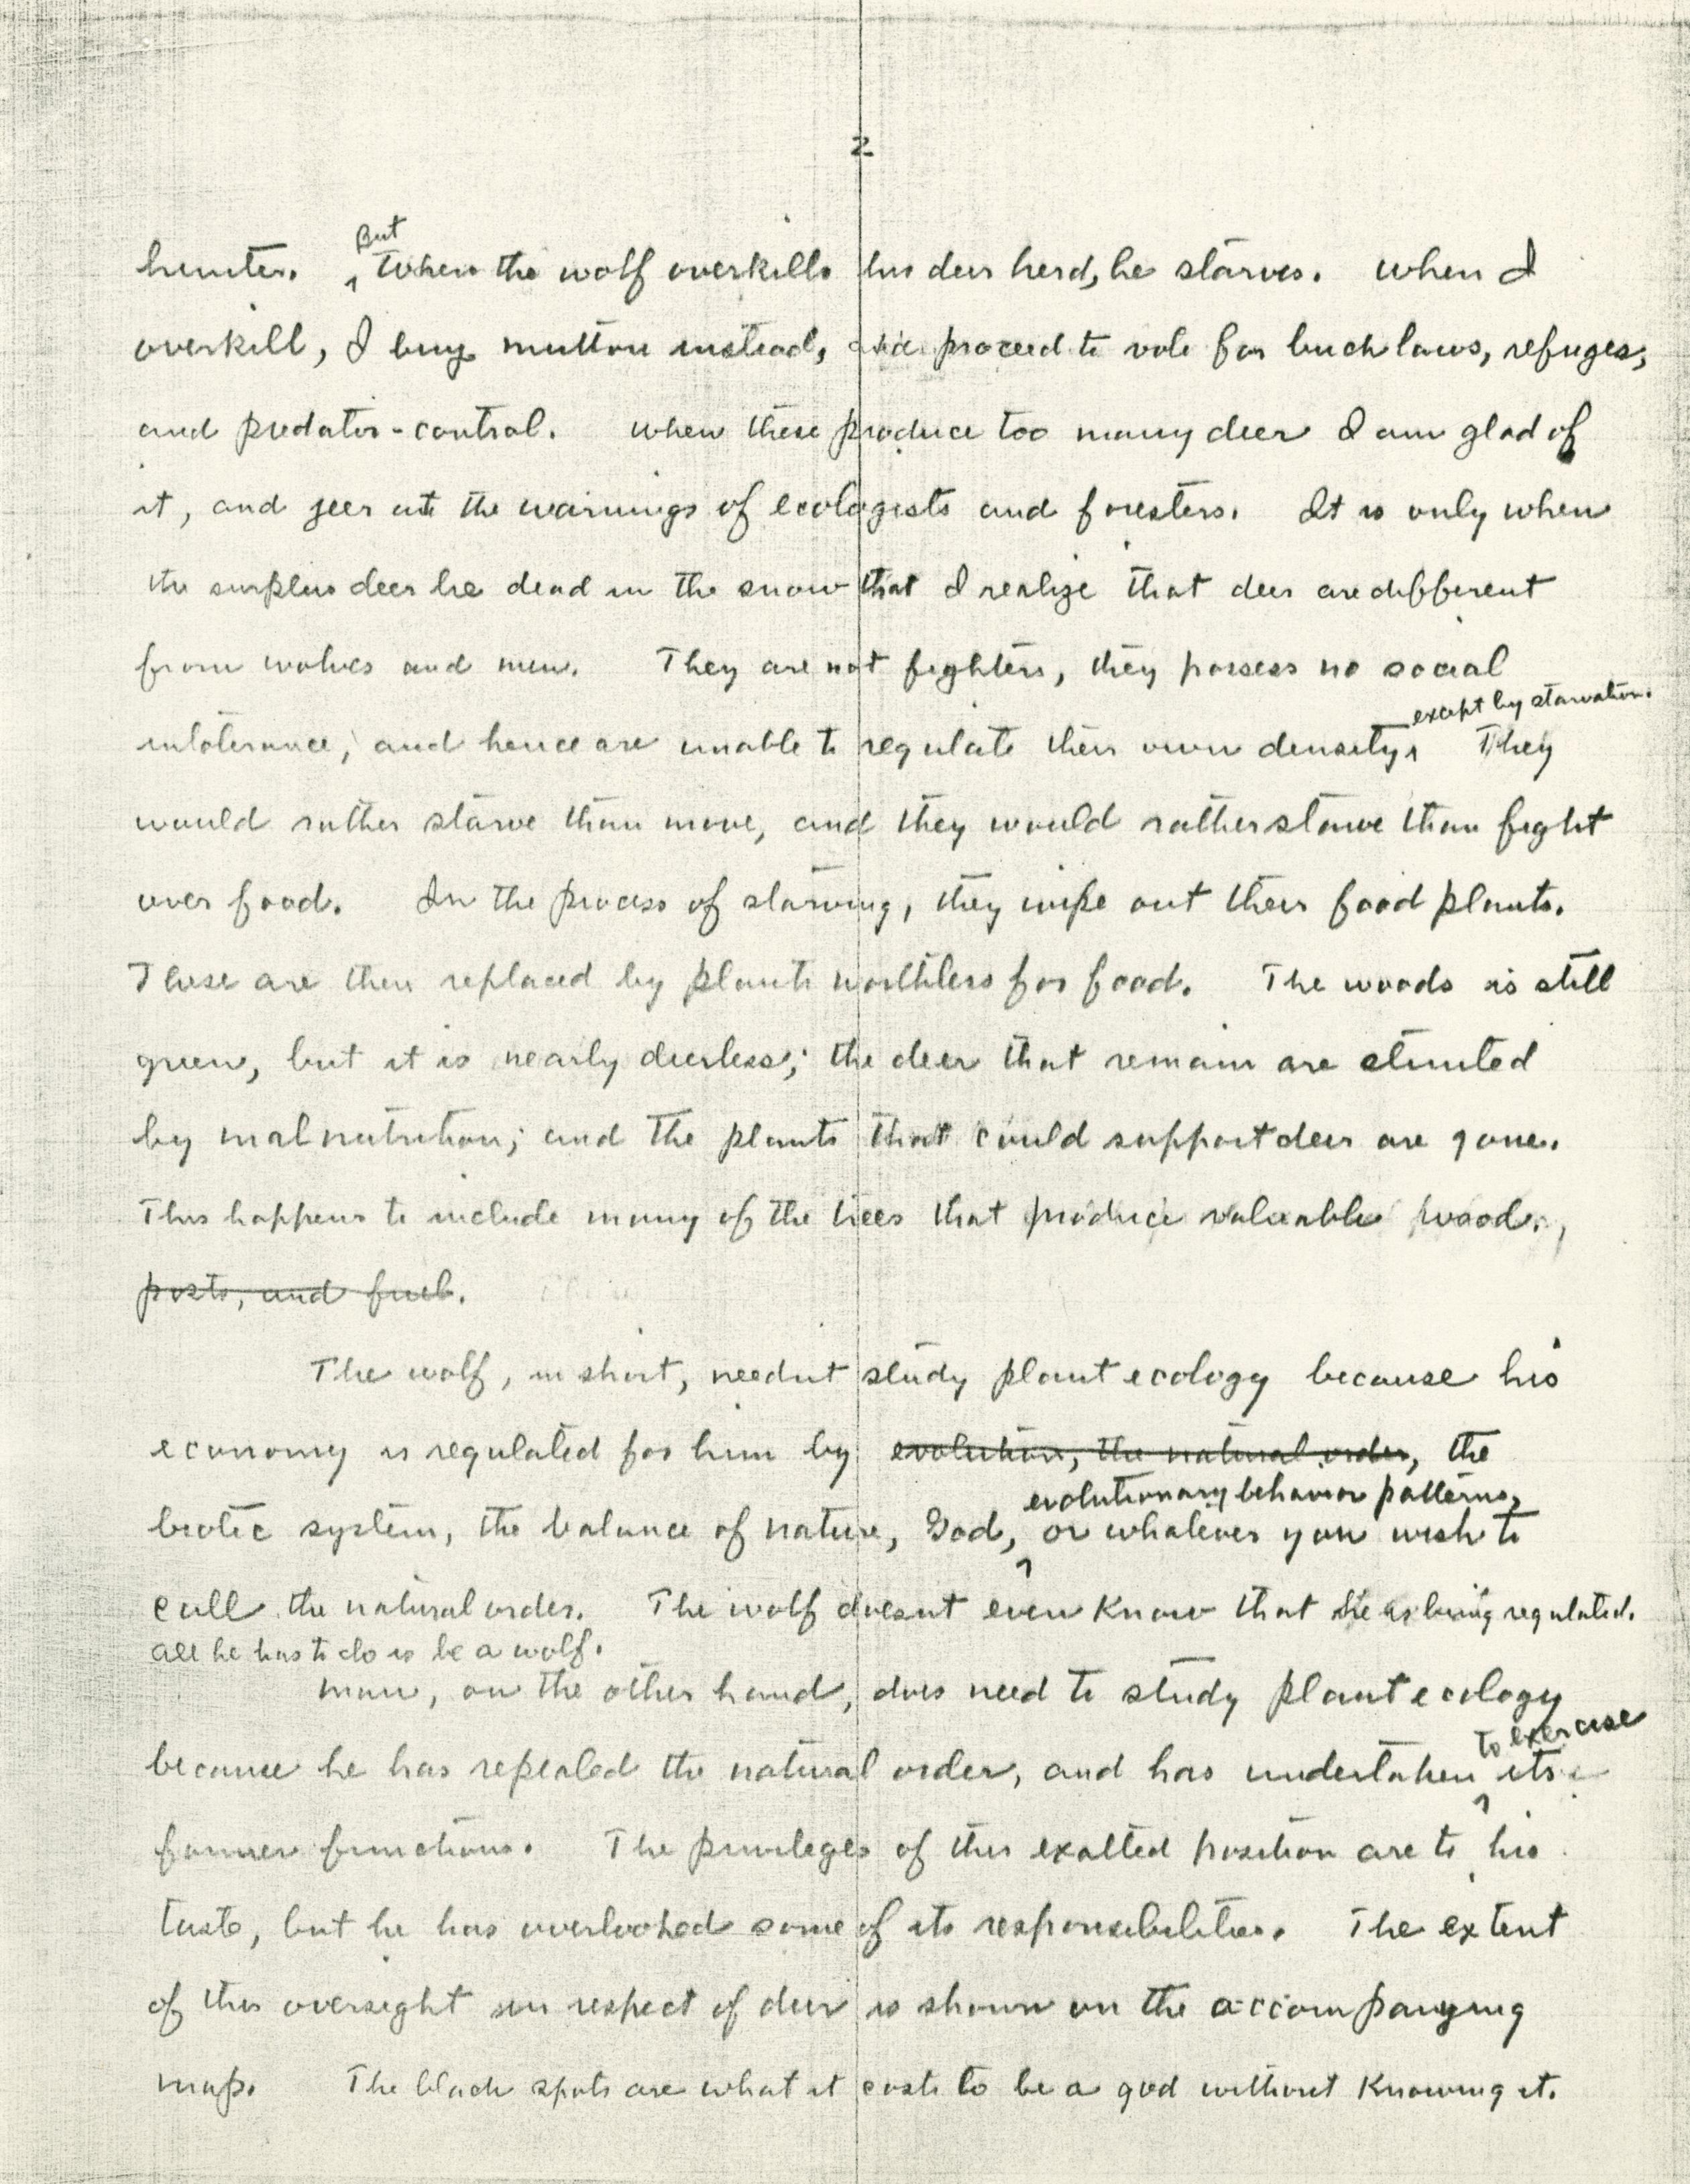 2
But
hunter. ‸ When the wolf overkills his deer herd, he starves. When I
overkill, I buy mutton instead, and proceed to vote for buck laws, refuges,
and predator-control. When these produce too many deer I am glad of
it, and jeer at the warnings of ecologists and foresters. It is only when
the surplus deer lie dead in the snow that I realize that deer are different
from wolves and men. They are not fighters, they possess no social
except by starvation.
intolerance, and hence are unable to regulate their own density‸ They
would rather starve than move, and they would rather starve than fight
over food. In the process of starving, they wipe out their food plants.
These are then replaced by plants worthless for food. The woods is still
green, but it is nearly deerless; the deer that remain are stunted
by malnutrition; and the plants that could support deer are gone.
This happens to include many of the trees that produce valuable wood.,
posts, and fuel.
The wolf, in short, neednt study plant ecology because his
economy is regulated for him by evolution, the natural order, the
evolutionary behavior patterns,
biotic system, the balance of nature, God, ‸ or whatever you wish to
call the natural order. The wolf doesnt even know that he is being regulated.
All he has to do is be a wolf.
Man, on the other hand, does need to study plant ecology
to exercise
because he has repealed the natural order, and has undertaken ‸ its
former functions. The privileges of this exalted position are to his
taste, but he has overlooked some of its responsibilities. The extent
of this oversight in respect of deer is shown on the accompanying
map. The black spots are what it costs to be a god without knowing it.